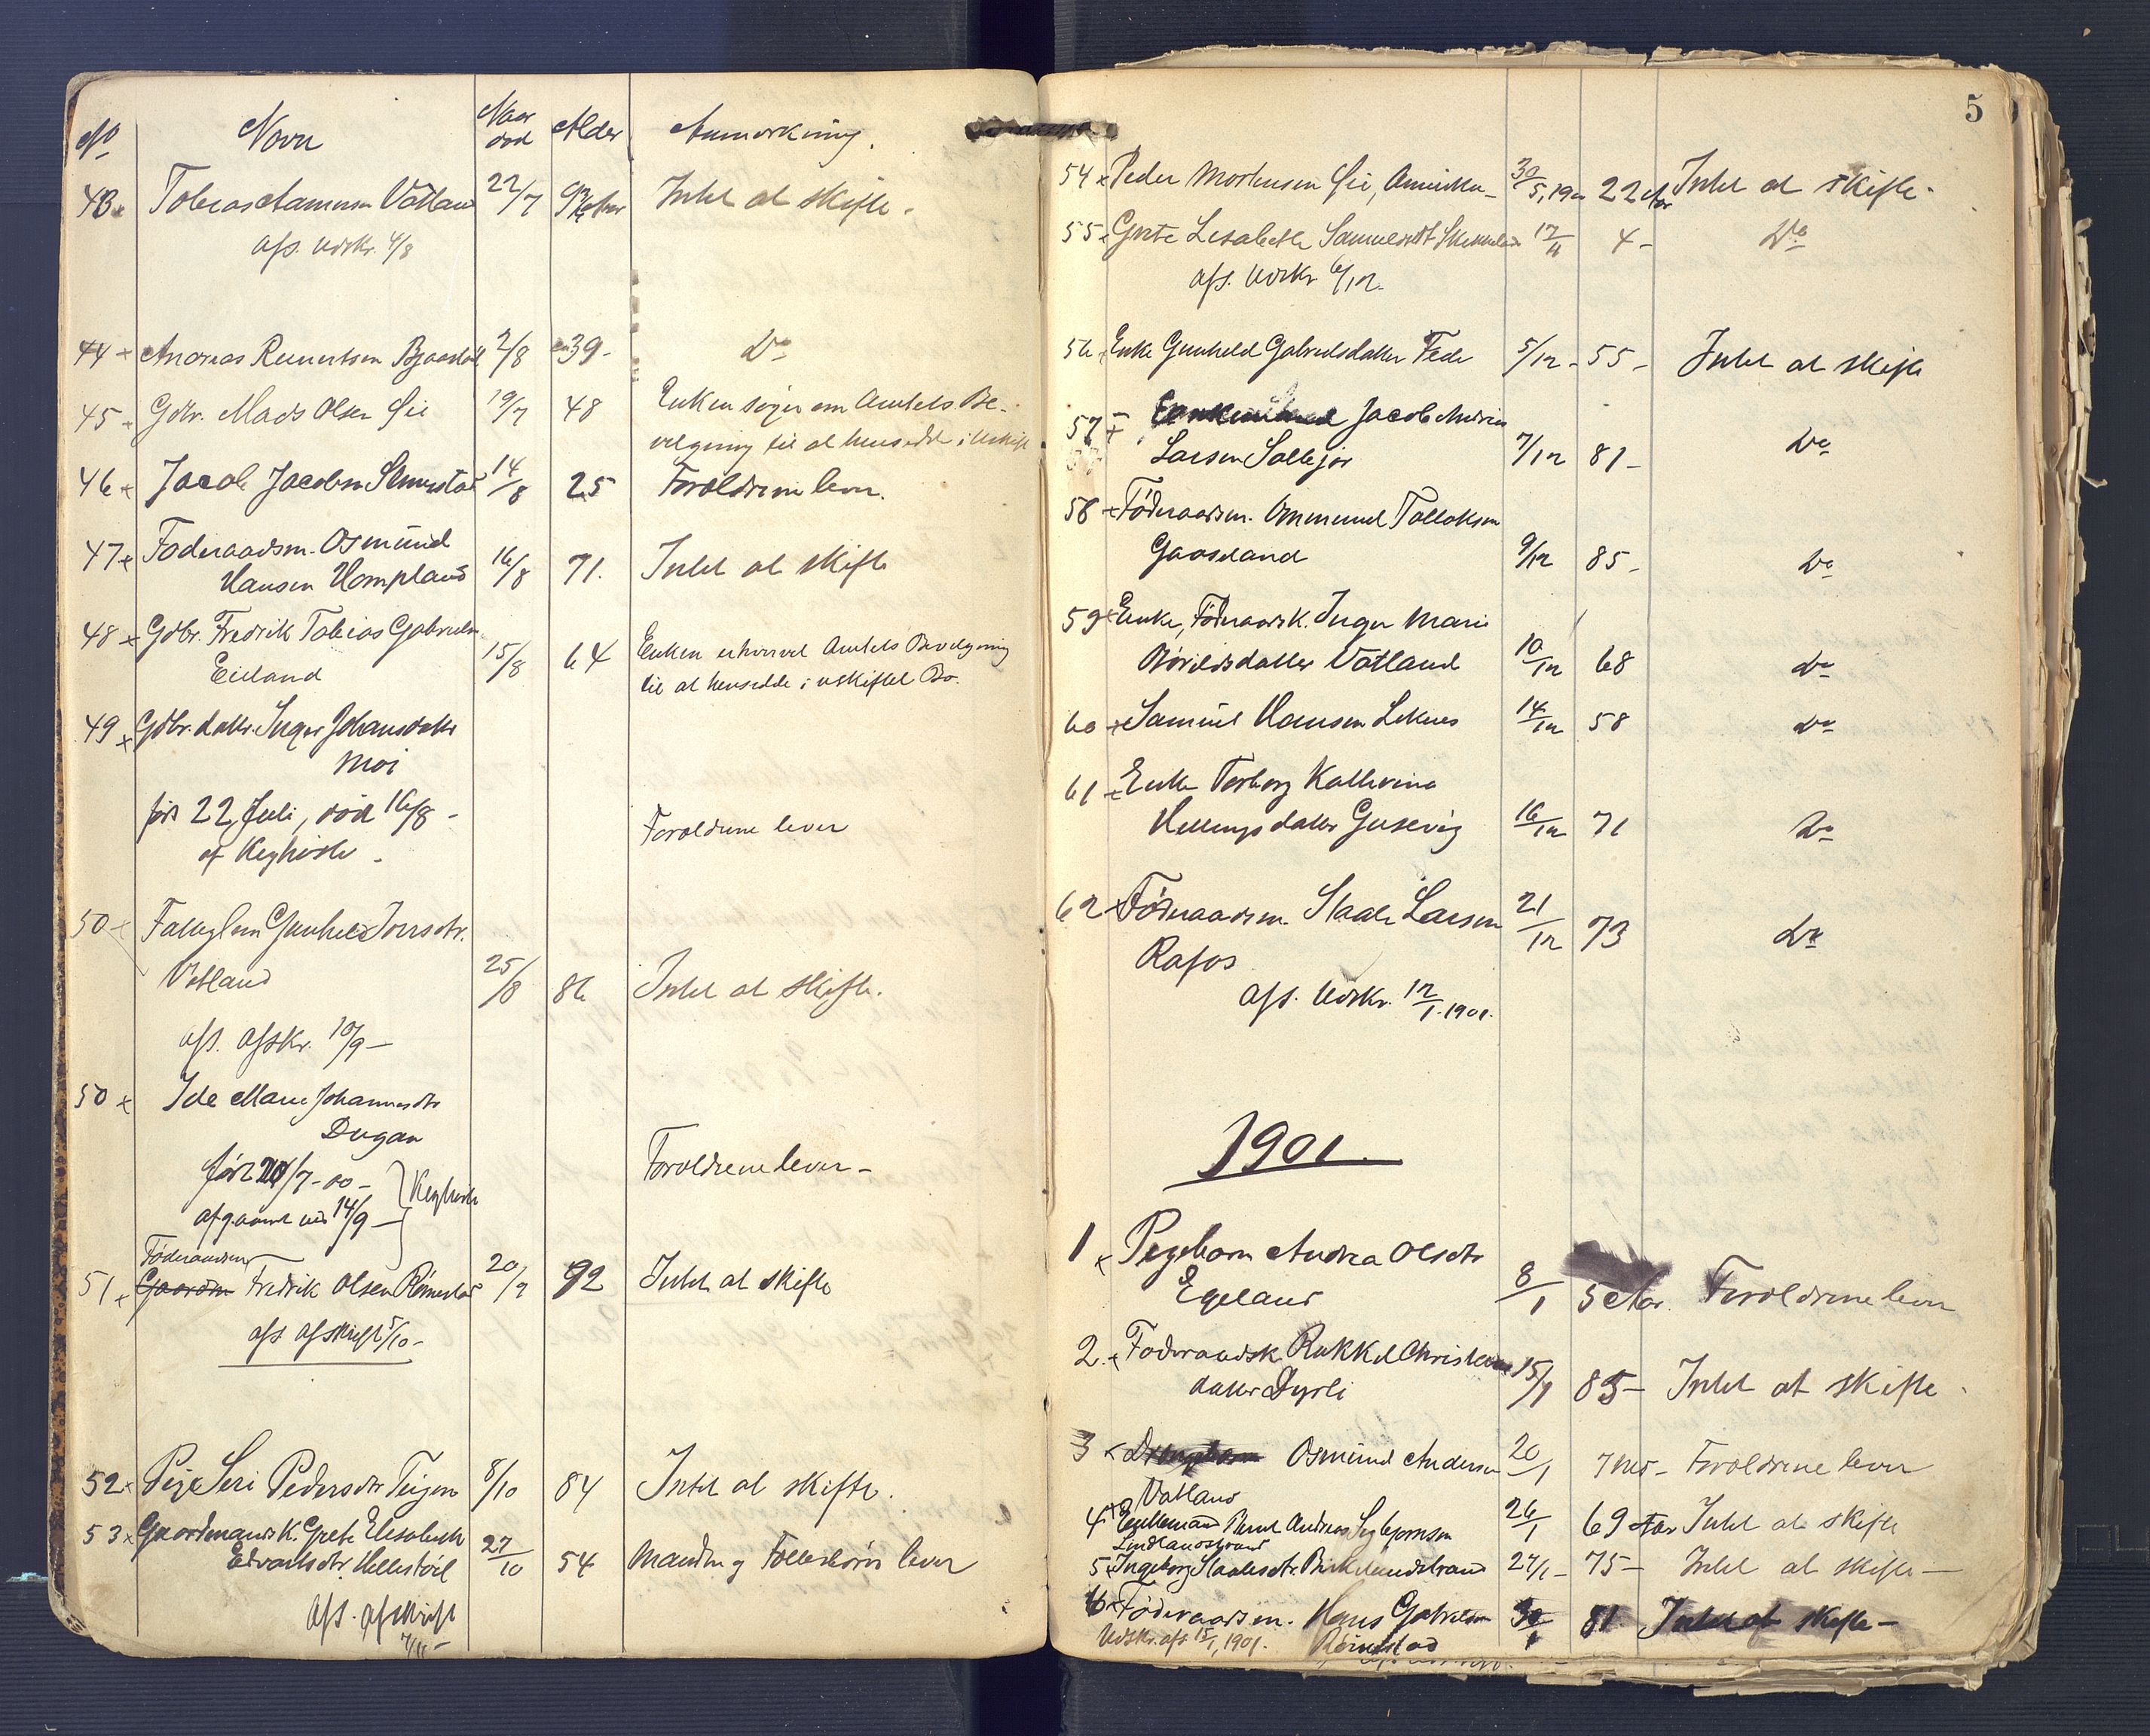 No Navn Naar død Alder Anmærkning.
43 Tobias Aanensen Vatland 22/7 Intet at skifte.
afs. Udskr. 4/8
44 Andreas Reinertsen 2/8 39 - Do
45 Gdbr. Mads Olsen Sie 19/7 48 Enken søger om Amtets Be-
vilgning til at hensidde i Uskift
46 Jacob Jacobsen 14/8 25 Forældrene lever.
47 Føderaadsm. Osmund
Hansen Hompland 16/8 71. Intet at skifte
48 Gdbr. Fredrik Tobias Gabrielsen
Eiland 15/8 64 Enken erhvervet Amtets Bevilgning
til at hensidde i uskiftet Bo.
49 Gdbr. datter Inger Johansdatter
Moi
født 22 Juli, død 16/8 -
af Kighoste - Forældrene lever
50 Fattiglem Gunhild Jonsdtr.
Vatland 25/8 86 Intet at skifte.
afs. Afskr. 10/9 -
50 Ide Marie Johannesdtr
Dugan
født 20/7 - 00 -
afgaaet ved 14/9 - Kighoste Forældrene lever -
Føderaadsm
51 Gaardm Fredrik Olsen Røinestad 20/9 92 Intet at skifte
afs. afskrift 5/10 -
52 Pige Seri Pedersdtr Teigen 8/10 84 Intet at skifte.
53 Gaardmandsk. Grete Elisabeth
Edvardsdtr. Hellestøl 27/10 54 Mand og Fællesbørn lever
Afs. Afskrift
7/11 -
5
54 Peder Mortensen Sie, Amerika - 30/5, 1900 22 Aar Intet at skifte -
55 Grete Lisabeth Samuelsdt 17/11 4 - Do
afs. Udskr 6/12.
56 Enke Gunhild Gabrielsdatter Fede 5/12 - 55 - Intet at skifte
57 Jacob Andreas
Larsen Sallejor 7/12 81 - Do
58 Føderaadsm. Ommund Tolloksen
Gaaseland 9/12 85 - Do
59 Enke, Føderaadsk. Inger Marie
Bøvildsdatter Vatland 10/12 68 Do
60 Samuel Hansen Leknes 14/12 58 Do
61 Enke Torborg Katherina
Hellingsdatter Gusevig 16/12 71 Do
62 Føderaadsm. Staale Larsen 21/12 73 Do
Rafos
afs. Udskr. 12/1. 1901.
1901.
1 Pigebarn Andrea Olsdtr
Egeland 8/1 5 Aar. Forældrene lever
2. Føderaadsk. Rakkel Christens
datter Dyrli 15/1 85 - Intet at skifte -
3 Osmund Andersen 20/1 7 Md - Forældrene lever
Vatland
4 Bernt Andreas Sigbjørnsen 26/1 69 Aar Intet at skifte
Lindlandstrand
5 Ingeborg Staalesdtr. Birkelandstrand 27/1 - 75 - Intet at skifte -
6 Føderaadsm. Hans Gabrielsen 30/1 81 Intet at skifte -
Udskr. afs 15/1, 1901. Røinestad